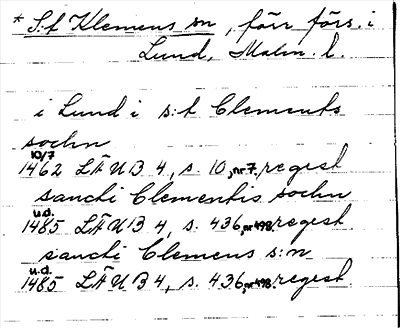 * S:t Klemens sn, förr förs. i
Lund, Malm. l.
i Lund i s:t Clements
sochn
10/7
1462 LÄUB 4, s. 10, nr 7. regest
sancti Clementis sochn
u.d.
1485 LÄUB 4, s. 436, nr 498. regest.
sancti Clemens s:n
u.d.
1485 LÄUB 4, s. 436, nr 498. regest.